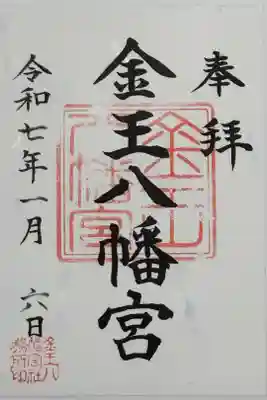 奉拝
金王八幡宮
令和七年一月 六日
金王八幡宮